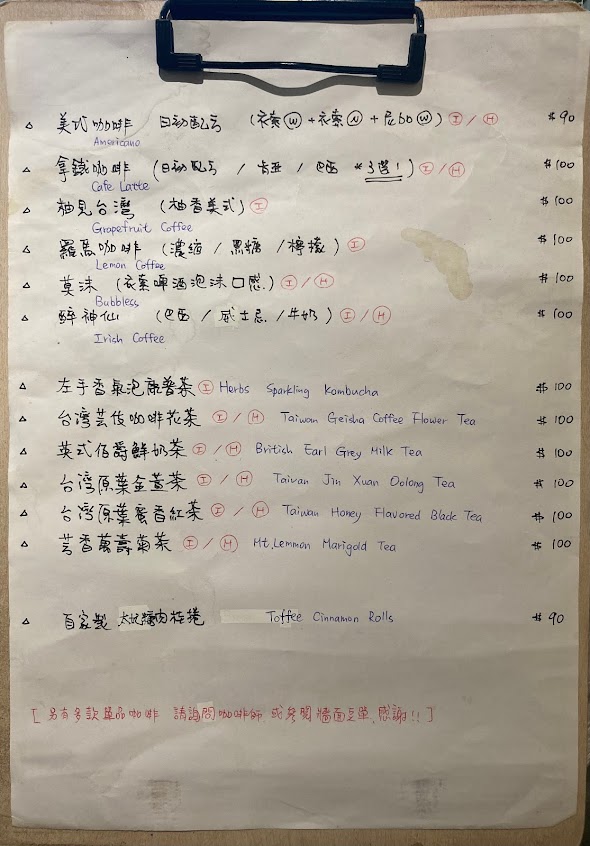 △ 美式咖啡 日動配方 (衣索Ⓦ+衣索Ⓝ+尼boⓌ) Ⓘ/Ⓗ $90
Americano
△ 拿鐵咖啡 (日動配方 / 肯亞 / 巴西 *3選!) Ⓘ/Ⓗ $100
Cafe Latte
△ 柚見台灣 (柚香美式) Ⓘ $100
Grapefruit Coffee
△ 羅馬咖啡 (濃縮 / 黑糖 / 檸檬) Ⓘ $100
Lemon Coffee
△ 莫沫 (衣索啤酒泡沫口感.) Ⓘ/Ⓗ $100
Bubbless
△ 醉神仙 (巴西 / 威士忌 / 牛奶) Ⓘ/Ⓗ $100
Irish Coffee
△ 左手香氣泡康普茶 Ⓘ Herbs Sparkling Kombucha $100
△ 台灣芸伎咖啡花茶 Ⓘ/Ⓗ Taiwan Geisha Coffee Flower Tea $100
△ 英式伯爵鮮奶茶 Ⓘ/Ⓗ British Earl Grey Milk Tea $100
△ 台灣原葉金萱茶 Ⓘ/Ⓗ Taiwan Jin Xuan Oolong Tea $100
△ 台灣原葉蜜香紅茶 Ⓘ/Ⓗ Taiwan Honey Flavored Black Tea $100
△ 芳香萬壽菊茶 Ⓘ/Ⓗ Mt.Lemmon Marigold Tea $100
△ 自家製 太妃糖肉桂捲 Toffee Cinnamon Rolls $90
[另有多款單品咖啡 請詢問咖啡師 或參閱牆面豆單,感謝!!]